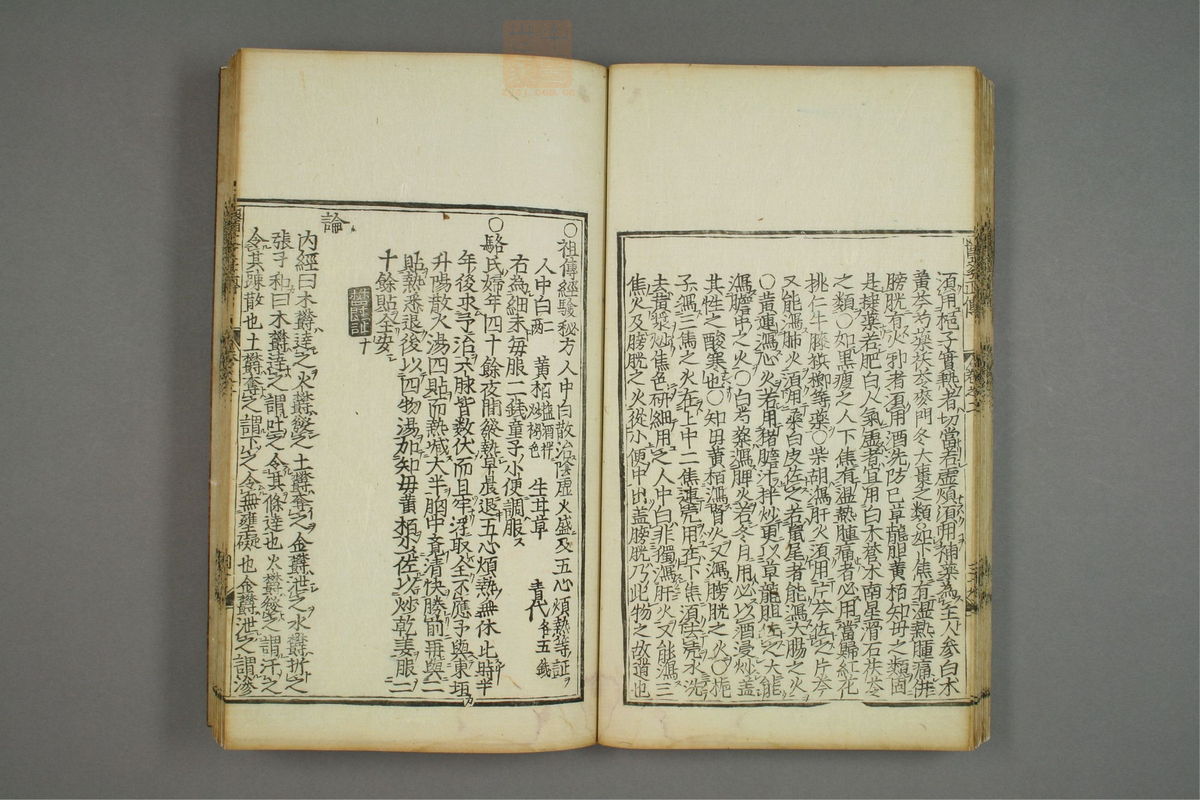 須用梔子實熱者切當若虛煩須用補藥為主人參白朮
黃芩芍藥茯苓麥門冬大棗之類○如下焦有濕熱腫痛併
膀胱有火邪者須用酒洗防己草龍膽黃栢知母之類固
是捷藥若肥白人氣虛者宜用白朮蒼朮南星滑石茯苓
之類○如黑瘦之人下焦有濕熱腫痛者必用當歸紅花
桃仁牛膝檳榔等藥○柴胡瀉肝火須用片芩佐之片芩
又能瀉肺火須用桑白皮佐之若鼠尾者能瀉大腸之火
○黃連瀉心火若用猪膽汁拌炒更以草龍胆佐之大能
瀉膽中之火○白芍藥瀉脾火若冬月用必以酒浸炒盖
其性之酸寒也○知母黃栢瀉腎火又瀉膀胱之火○梔
子瀉三焦之火在上中二焦連殼用在下焦須去殼水洗
去黃漿炒焦色研細用之人中白非獨瀉肝火又能瀉三
焦火及膀胱之火從小便中出盖膀胱乃此物之故道也
○祖傳經驗秘方人中白散治陰虛火盛及五心煩熱等証
人中白二兩 黃栢塩酒拌炒褐色 生甘草 青代各五錢
右為細末每服二錢童子小便調服
○駱氏婦年四十餘夜間發熱早晨退五心煩熱無休此時半
年後求予治六脉皆数伏而且牢浮取全不應予與東垣
升陽散火湯四貼而熱减大半胸中竟清快勝前再與二
貼熱悉退後以四物湯加知母黃栢少佐以炒乾姜服二
十餘貼全安
鬱証 十
論
內經曰木鬱達之火鬱發之土鬱奪之金鬱泄之水鬱折之
張子和曰木鬱達之謂吐之令其條達也火鬱發之謂汗之
令其踈散也土鬱奪之謂下之令無壅礙也金鬱泄之謂滲